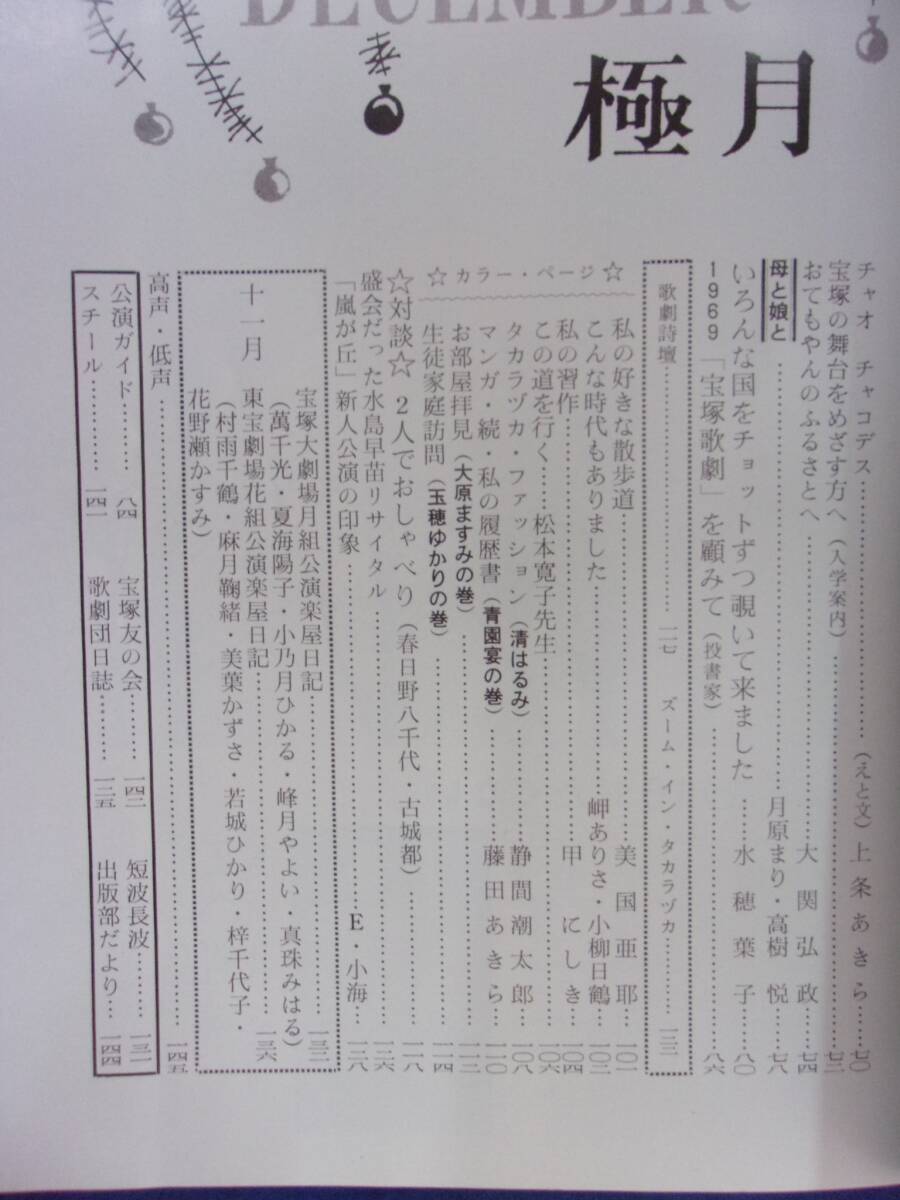 DECEMBER
極月
チャオ チャコデス……………(えと文)上条あきら……七〇
宝塚の舞台をめざす方へ(入学案内)……………七二
おてもやんのふるさとへ……………大関弘政……七四
母と娘と……………月原まり・高樹悦……七八
いろんな国をチョットずつ覗いて来ました……水穂葉子……八〇
1969「宝塚歌劇」を顧みて(投書家)……………八六
歌劇詩壇……………一一七 ズーム・イン・タカラヅカ…………一三三
☆カラー・ページ☆
私の好きな散歩道……………美国亜耶……一〇一
こんな時代もありました……………岬ありさ・小柳日鶴……一〇二
私の習作……………甲にしき……一〇四
この道を行く……松本寛子先生……………一〇六
タカラヅカ・ファッション(清はるみ)……………静間潮太郎……一〇八
マンガ・続・私の履歴書(青園宴の巻)……………藤田あきら……一一〇
お部屋拝見(大原ますみの巻)……………一一二
生徒家庭訪問(玉穂ゆかりの巻)……………一一四
☆対談☆ 2人でおしゃべり(春日野八千代・古城都)……………一一八
盛会だった水島早苗リサイタル……………一二六
「嵐が丘」新人公演の印象……………E・小海……一二八
十一月
宝塚大劇場月組公演楽屋日記……………一三二
(萬千光・夏海陽子・小乃月ひかる・峰月やよい・真珠みはる)
東宝劇場花組公演楽屋日記……………一三六
(村雨千鶴・麻月鞠緒・美葉かずさ・若城ひかり・梓千代子・
花野瀬かすみ)
高声・低声……………一四五
公演ガイド…………八四 宝塚友の会………一四二 短波長波………一三一
スチール…………一四一 歌劇団日誌………一二五 出版部だより…一四四